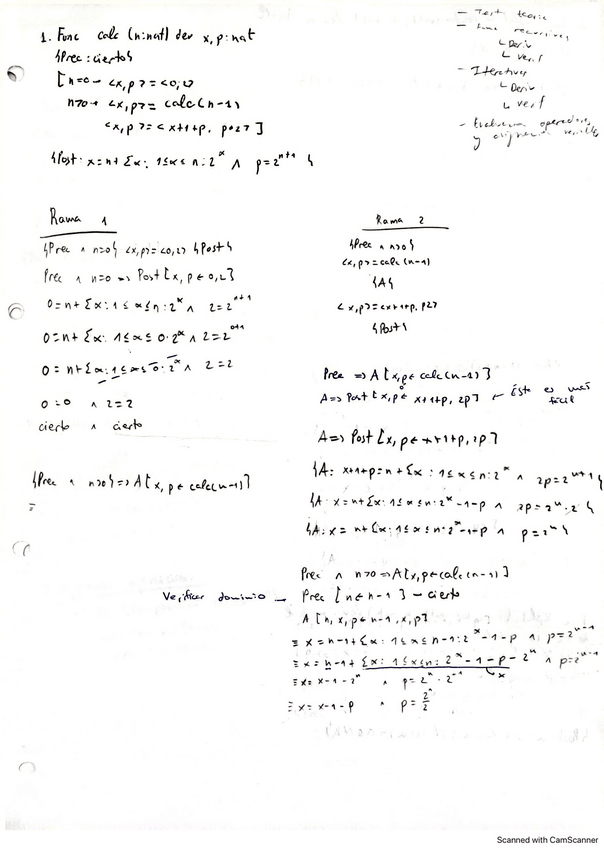 1. Func calc (n:nat) dev x,p:nat
{Prec: cierto}
[n=0 → <x,p> = <0,2>
n>0 → <x,p> = calc(n-1)
<x,p> = <x+1+p, p*2>]
{Post: x=n+{Σα: 1≤α≤n: 2^α ∧ p=2^(n+1)}
- Iterativas
↳ Deriv
↳ verif
Rama 1
{Prec ∧ n=0} <x,p>=<0,2> {Post}
Prec ∧ n=0 => Post[x,p←0,2]
0=n+{Σα: 1≤α≤n: 2^α ∧ 2=2^(n+1)
0=n+{Σα: 1≤α≤0: 2^α ∧ 2=2^(0+1)
0=n+{Σα: 1≤α≤0: 2^α ∧ 2=2
0=0 ∧ 2=2
cierto ∧ cierto
{Prec ∧ n>0} => A[x,p←calc(n-1)]
=
Rama 2
{Prec ∧ n>0}
<x,p>=calc(n-1)
{A}
<x,p>=<x+1+p, p2>
{Post}
Prec => A[x,p←calc(n-1)]
A=> Post[x,p← x+1+p, 2p] ← Éste es más fácil
A=> Post[x,p←x+1+p, 2p]
{A: x+1+p=n+{Σα: 1≤α≤n: 2^α ∧ 2p=2^(n+1)}
{A: x=n+{Σα: 1≤α≤n: 2^α-1-p ∧ 2p=2^n·2}
{A: x=n+{Σα: 1≤α≤n: 2^α-1-p ∧ p=2^n}
Prec ∧ n>0 => A[x,p←calc(n-1)]
Verificar dominio → Prec [n←n-1] - cierto
A[n,x,p←n-1,x,p]
≡ x=n-1+{Σα: 1≤α≤n-1: 2^α-1-p ∧ p=2^(n-1)
≡ x=n-1+{Σα: 1≤α≤n: 2^α-1-p-2^n ∧ p=2^(n-1)
x
≡ x=x-1-2^n ∧ p=2^n·2^-1
≡ x=x-1-p ∧ p=2^n/2
Scanned with CamScanner